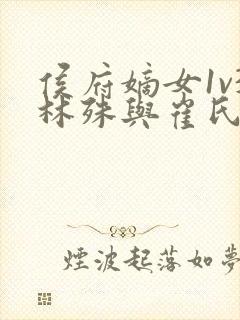 侯府嫡女1v
林殊與崔民
煙波起落如夢